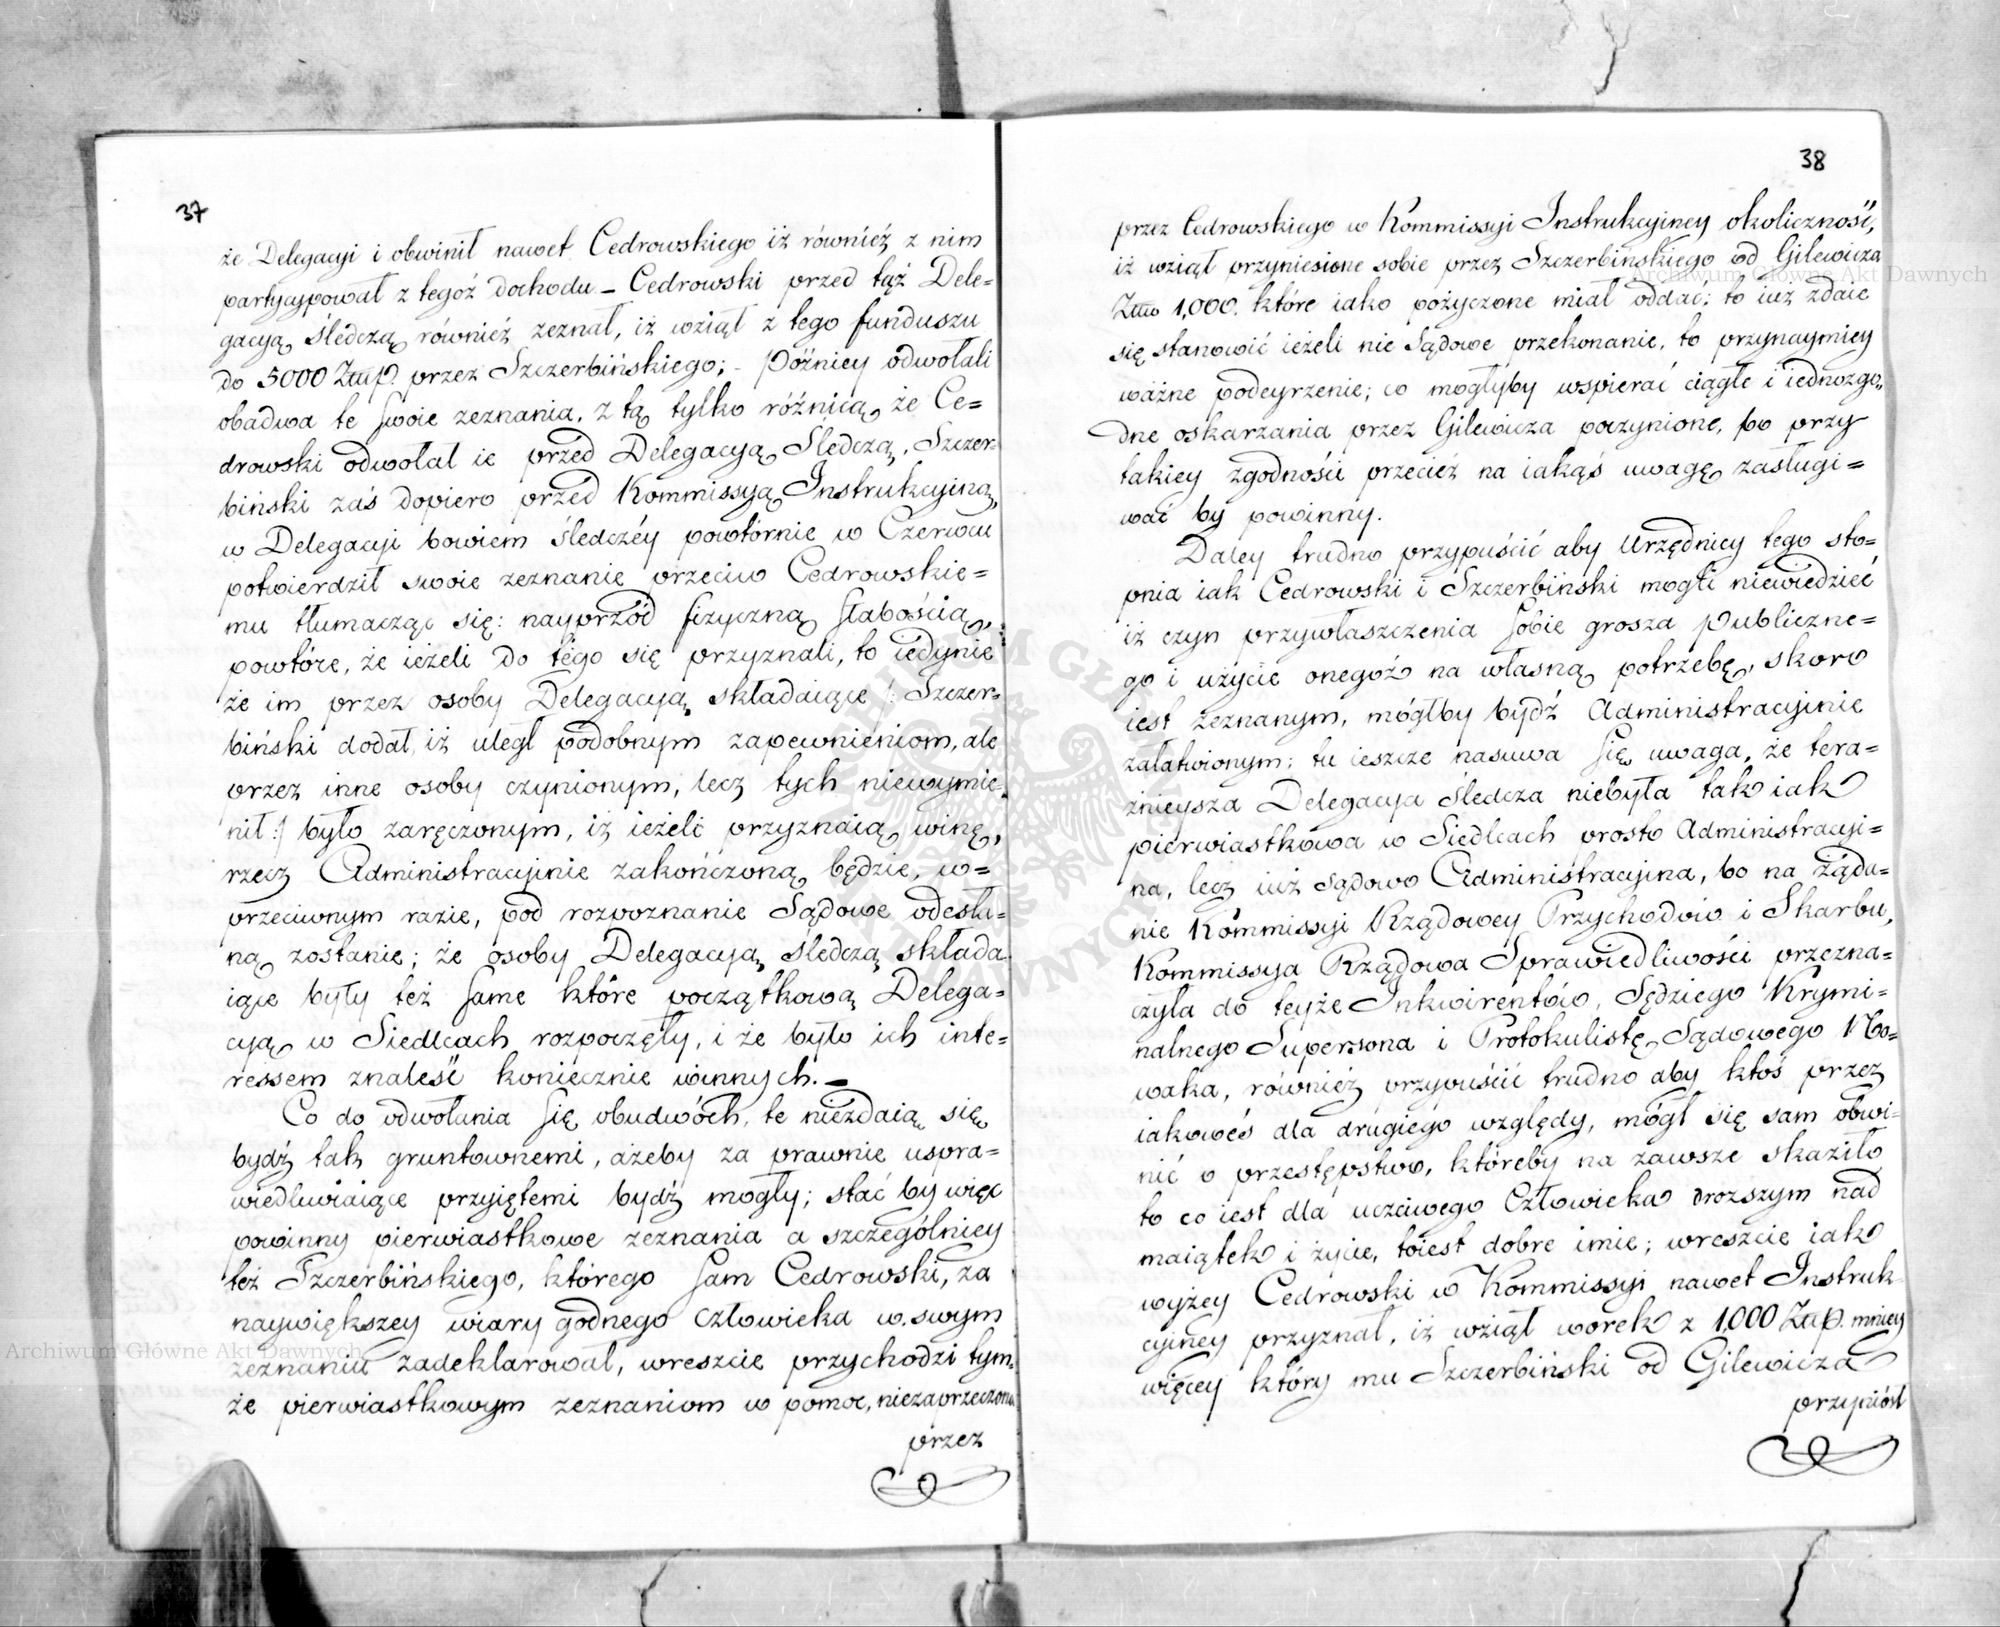 37
że Delegacyi i obwinił nawet Cedrowskiego iż również z nim
partycypował z tegoż dochodu – Cedrowski przed tąż Dele=
gacyą śledczą również zeznał, iż wziął z tego funduszu
do 5000 Złłp. przez Szczerbińskiego; – Później odwołali
obadwa te swoie zeznania, z tą tylko różnicą, że Ce=
drowski odwołał ie przed Delegacyą Śledczą, Szczer=
biński zaś dopiero przed Kommissyą Instrukcyiną,
w Delegacyi bowiem śledczéy powtórnie w Czerwcu
potwierdził swoie zeznanie przeciw Cedrowskie=
mu tłumacząc się: nayprzód fizyczną słabością,
powtóre, że ieżeli do tego się przyznali, to iedynie
że im przez osoby Delegacyą składaiące /: Szczer=
biński dodał, iż uległ podobnym zapewnieniom, ale
przez inne osoby czynionym, lecz tych niewymie=
nił :/ było zaręczonym, iż ieżeli przyznaią winę,
rzecz Administracyinie zakończoną będzie, w=
przeciwnym razie, pod rozpoznanie Sądowe odesła=
ną zostanie; że osoby Delegacyą śledczą składa
iące były też same które początkową Delega=
cyą w Siedlcach rozpoczęły, i że było ich inte=
ressem znaleść koniecznie winnych. –
Co do odwołania się obudwóch, te niezdaią się
bydź tak gruntownemi, ażeby za prawnie uspra=
wiedliwiaiące przyiętemi bydź mogły; stać by więc
powinny pierwiastkowe zeznania a szczególniey
też Szczerbińskiego, którego sam Cedrowski, za
naywiększey wiary godnego człowieka w swym
zeznaniu zadeklarował, wreszcie przychodzi tym=
że pierwiastkowym zeznaniom w pomoc, niezaprzeczona
przez
38
przez Cedrowskiego w Kommissyi Instrukcyiney okoliczność,
iż wziął przyniesione sobie przez Szczerbińskiego od Gilewicza
Złłp 1,000. które iako pożyczone miał oddać; to iuż zdaie
się stanowić ieżeli nie Sądowe przekonanie, to przynaymniey
ważne podeyrzenie; co mogłyby wspierać ciągłe i iednozgo=
dne oskarżania przez Gilewicza poczynione, bo przy
takiey zgodności przecież na iakąś uwagę zasługi=
wać by powinny.
Daley trudno przypuścić aby Urzędnicy tego sto=
pnia iak Cedrowski i Szczerbiński mogli niewiedzieć
iż czyn przywłaszczenia sobie grosza Publiczne=
go i użycie onegoż na własną potrzebę, skoro
iest zeznanym, mógłby bydź Administracyinie
załatwionym; tu ieszcze nasuwa się uwaga, że tera=
znieysza Delegacya śledcza niebyła tak iak
pierwiastkowa w Siedlcach prosto Administracyi=
na, lecz iuż sądowo Administracyina, bo na żąda=
nie Kommissyi Rządowey Przychodów i Skarbu,
Kommissya Rządowa Sprawiedliwości przezna=
czyła do teyże Inkwirentów, Sędziego Krymi=
nalnego Supersona i Protokulistę Sądowego No=
waka, również przypuścić trudno aby ktoś przez
iakoweś dla drugiego względy, mógł się sam obwi=
nić o przestępstwo, któreby na zawsze skaziło
to co iest dla uczciwego Człowieka drozszym nad
maiątek i życie, toiest dobre imie; wreszcie iak
wyżey Cedrowski w Kommissyi nawet Instruk=
cyiney przyznał, iż wziął worek z 1,000 Złłp. mniey
więcey który mu Szczerbiński od Gilewicza
przyniósł
Archiwum Główne Akt Dawnych
Archiwum Główne Akt Dawnych
Archiwum Główne Akt Dawnych
ARCHIWUM GŁÓWNE AKT DAWNYCH